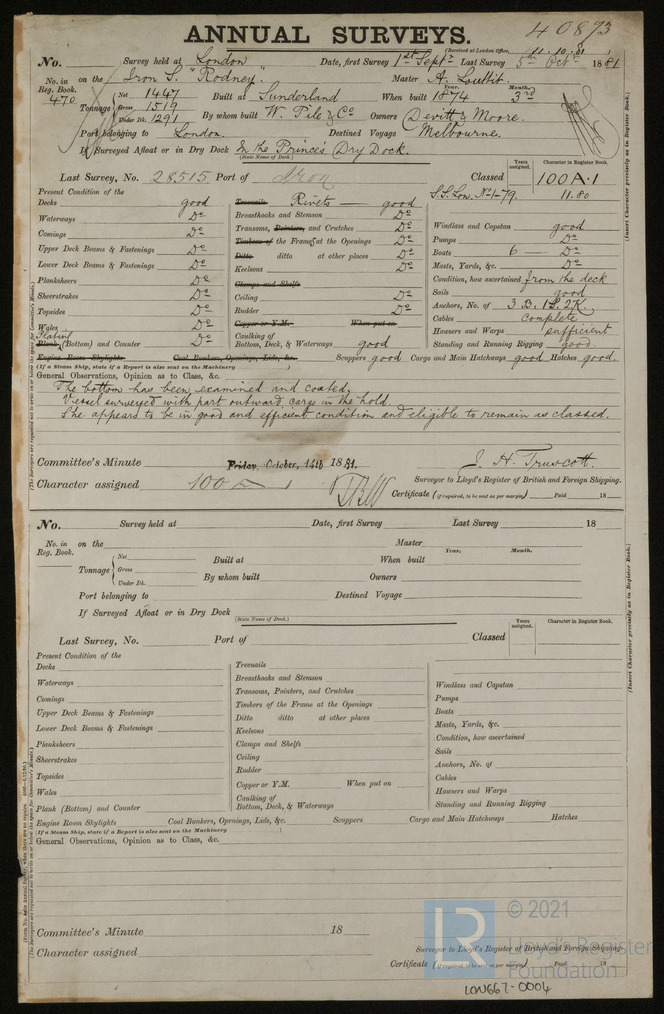 ANNUAL SURVEYS. 40873
(Received at London Office, 11.10.81
No. Survey held at London Date, first Survey 1st Sept Last Survey 5th Oct 1881
No. in Reg. Book. 470 on the Iron S. "Rodney". Master A. Louttit.
Tonnage Net 1447 Gross 1519 Under Dk. 1291 Built at Sunderland When built Year. 1874 Month. 3rd
By whom built W. Pile & Co Owners Devitt & Moore.
Port belonging to London. Destined Voyage Melbourne.
If Surveyed Afloat or in Dry Dock In the Princes Dry Dock.
(State Name of Dock.)
Last Survey, No. 28515 Port of Iron Classed Years assigned. Character in Register Book. 100 A.1
S.S. Lon. No 1-79. 11.80
(Insert Character precisely as in Register Book.)
Present Condition of the
Decks good
Waterways Do
Comings Do
Upper Deck Beams & Fastenings Do
Lower Deck Beams & Fastenings Do
Planksheers Do
Sheerstrakes Do
Topsides Do
Wales Do
Plating
Plank (Bottom) and Counter Do
Treenails Rivets good
Breasthooks and Stemson Do
Transoms, Pointers, and Crutches Do
Timbers of the Frames at the Openings Do
Ditto ditto at other places Do
Keelsons Do
Clamps and Shelfs
Ceiling Do
Rudder Do
Copper or Y.M. When put on
Caulking of Bottom, Deck, & Waterways good
Windlass and Capstan good
Pumps Do
Boats 6 Do
Masts, Yards, &c. Do
Condition, how ascertained from the deck
Sails good
Anchors, No. of 3 B. 1 S. 2 K.
Cables complete
Hawsers and Warps sufficient
Standing and Running Rigging good.
Engine Room Skylights Coal Bunkers, Openings, Lids, &c. Scuppers good Cargo and Main Hatchways good Hatches good.
(If a Steam Ship, state if a Report is also sent on the Machinery )
General Observations, Opinion as to Class, &c.
The bottom has been examined and coated.
Vessel surveyed with part outward cargo in the hold.
She appears to be in good and efficient condition and eligible to remain as classed.
Committee's Minute Friday, October, 14th 1881. J. H. Truscott.
Character assigned 100 A 1
Surveyor to Lloyd's Register of British and Foreign Shipping.
Certificate (if required, to be sent as per margin) Paid 18
No. Survey held at Date, first Survey Last Survey 18
No. in Reg. Book. on the Master
Tonnage Net Gross Under Dk. Built at When built Year. Month.
By whom built Owners
Port belonging to Destined Voyage
If Surveyed Afloat or in Dry Dock
(State Name of Dock.)
Last Survey, No. Port of Classed Years assigned. Character in Register Book.
(Insert Character precisely as in Register Book.)
Present Condition of the
Decks
Waterways
Comings
Upper Deck Beams & Fastenings
Lower Deck Beams & Fastenings
Planksheers
Sheerstrakes
Topsides
Wales
Plank (Bottom) and Counter
Treenails
Breasthooks and Stemson
Transoms, Pointers, and Crutches
Timbers of the Frame at the Openings
Ditto ditto at other places
Keelsons
Clamps and Shelfs
Ceiling
Rudder
Copper or Y.M. When put on
Caulking of Bottom, Deck, & Waterways
Windlass and Capstan
Pumps
Boats
Masts, Yards, &c.
Condition, how ascertained
Sails
Anchors, No. of
Cables
Hawsers and Warps
Standing and Running Rigging
Engine Room Skylights Coal Bunkers, Openings, Lids, &c. Scuppers Cargo and Main Hatchways Hatches
(If a Steam Ship, state if a Report is also sent on the Machinery )
General Observations, Opinion as to Class, &c.
Committee's Minute 18
Character assigned
Surveyor to Lloyd's Register of British and Foreign Shipping.
Certificate (if required, to be sent as per margin) Paid 18
LR © 2021
Lloyd's Register
Foundation
LON667-0004